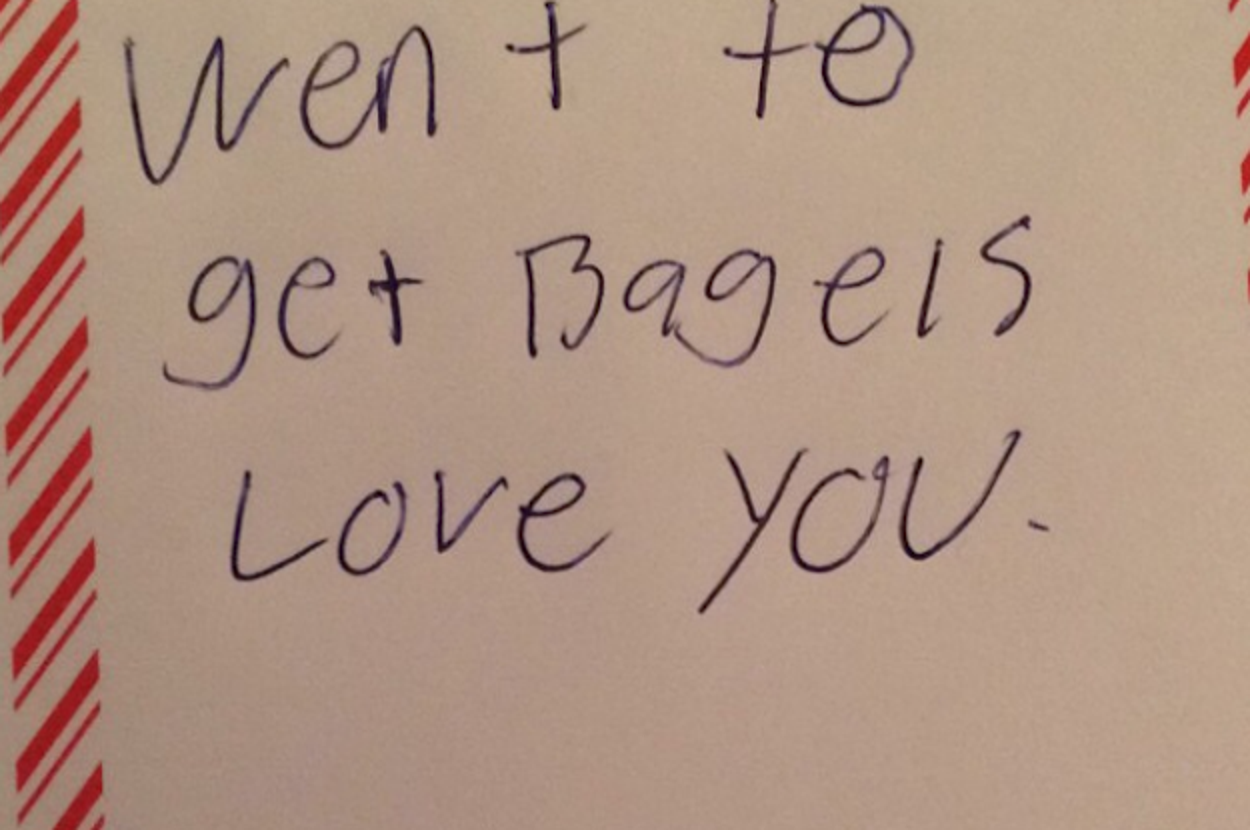 Went to
get Bagels
Love you.